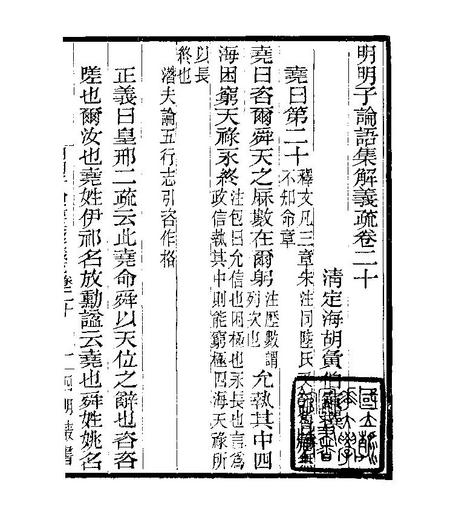 明明子論語集解義疏卷二十
清定海胡夤
堯曰第二十釋文凡三章朱注同陸氏
不知命章
堯曰咨爾舜天之厤數在爾躬注歷數謂列次也允執其中四
海困窮天祿永終注包曰允信也困極也永長也言爲政信執其中則能窮極四海天祿所
以長
終也
潛夫論五行志引咨作格
正義曰皇邢二疏云此堯命舜以天位之辭也咨咨
嗟也爾汝也堯姓伊祁名放勳謚云堯也舜姓姚名
四明叢書